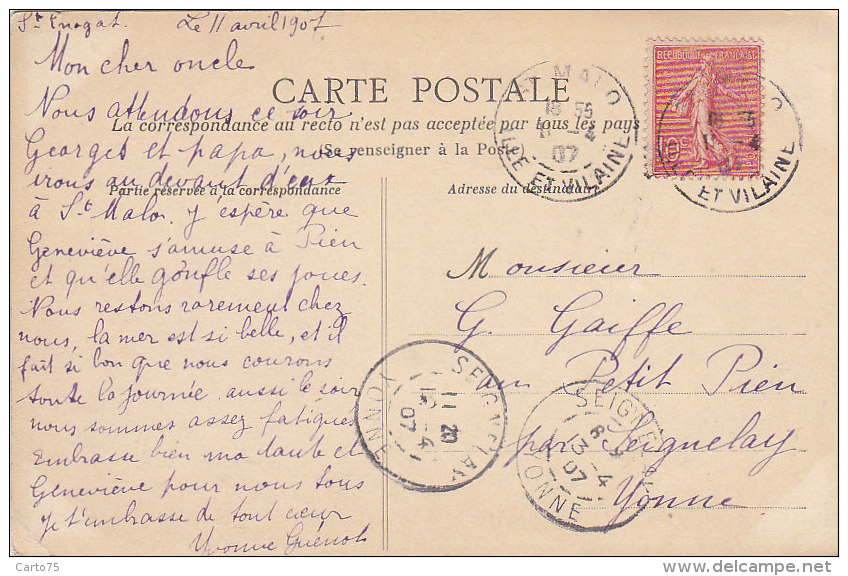 St Enogat. Le 11 avril 1907
Mon cher oncle
CARTE POSTALE
La correspondance au recto n'est pas acceptée par tous les pays
(Se renseigner à la Poste)
Partie réservée à la correspondance
Adresse du destinataire
Nous attendons ce soir
Georges et papa, nous
irons au devant d'eux
à St Malo. J'espère que
Geneviève s'amuse à Pien
et qu'elle gonfle ses joues.
Nous restons rarement chez
nous, la mer est si belle, et il
fait si bon que nous courons
toute la journée aussi le soir
nous sommes assez fatigués
Embrasse bien ma tante et
Geneviève pour nous tous
Je t'embrasse de tout cœur
Yvonne Guénot
Monsieur
G. Gaiffe
au Petit Pien
par Seignelay
Yonne
REPUBLIQUE FRANÇAISE
ST MALO
11 -4
07
ILLE ET VILAINE
ET VILAINE
SEIGNELAY
-4
07
YONNE
SEIGNELAY
13 -4
07
YONNE
Carto75
delcampe.net